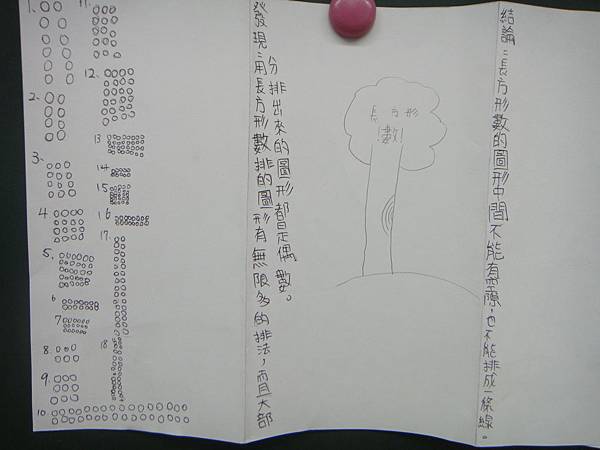 1.
2.
3.
4
5.
6
7
8.
9.
10.
11.
12.
13
14
15
16
17.
18
發現:用長方形數排的圖形有無限多的排法,而且大部
分排出來的圖形都是偶數。
長方形
數!
結論:長方形數的圖形中間不能有空隙,也不能排成一條線。